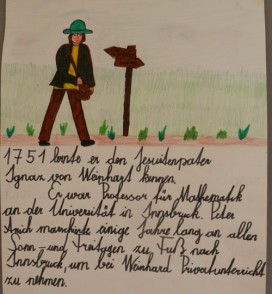 1751 lernte er den Jesuitenpater
Ignaz von Weinhart kennen.
Er war Professor für Mathematik
an der Universität in Innsbruck. Peter
Anich marschierte einige Jahre lang an allen
Sonn- und Feiertagen zu Fuß nach
Innsbruck, um bei Weinhard Privatunterricht
zu nehmen.